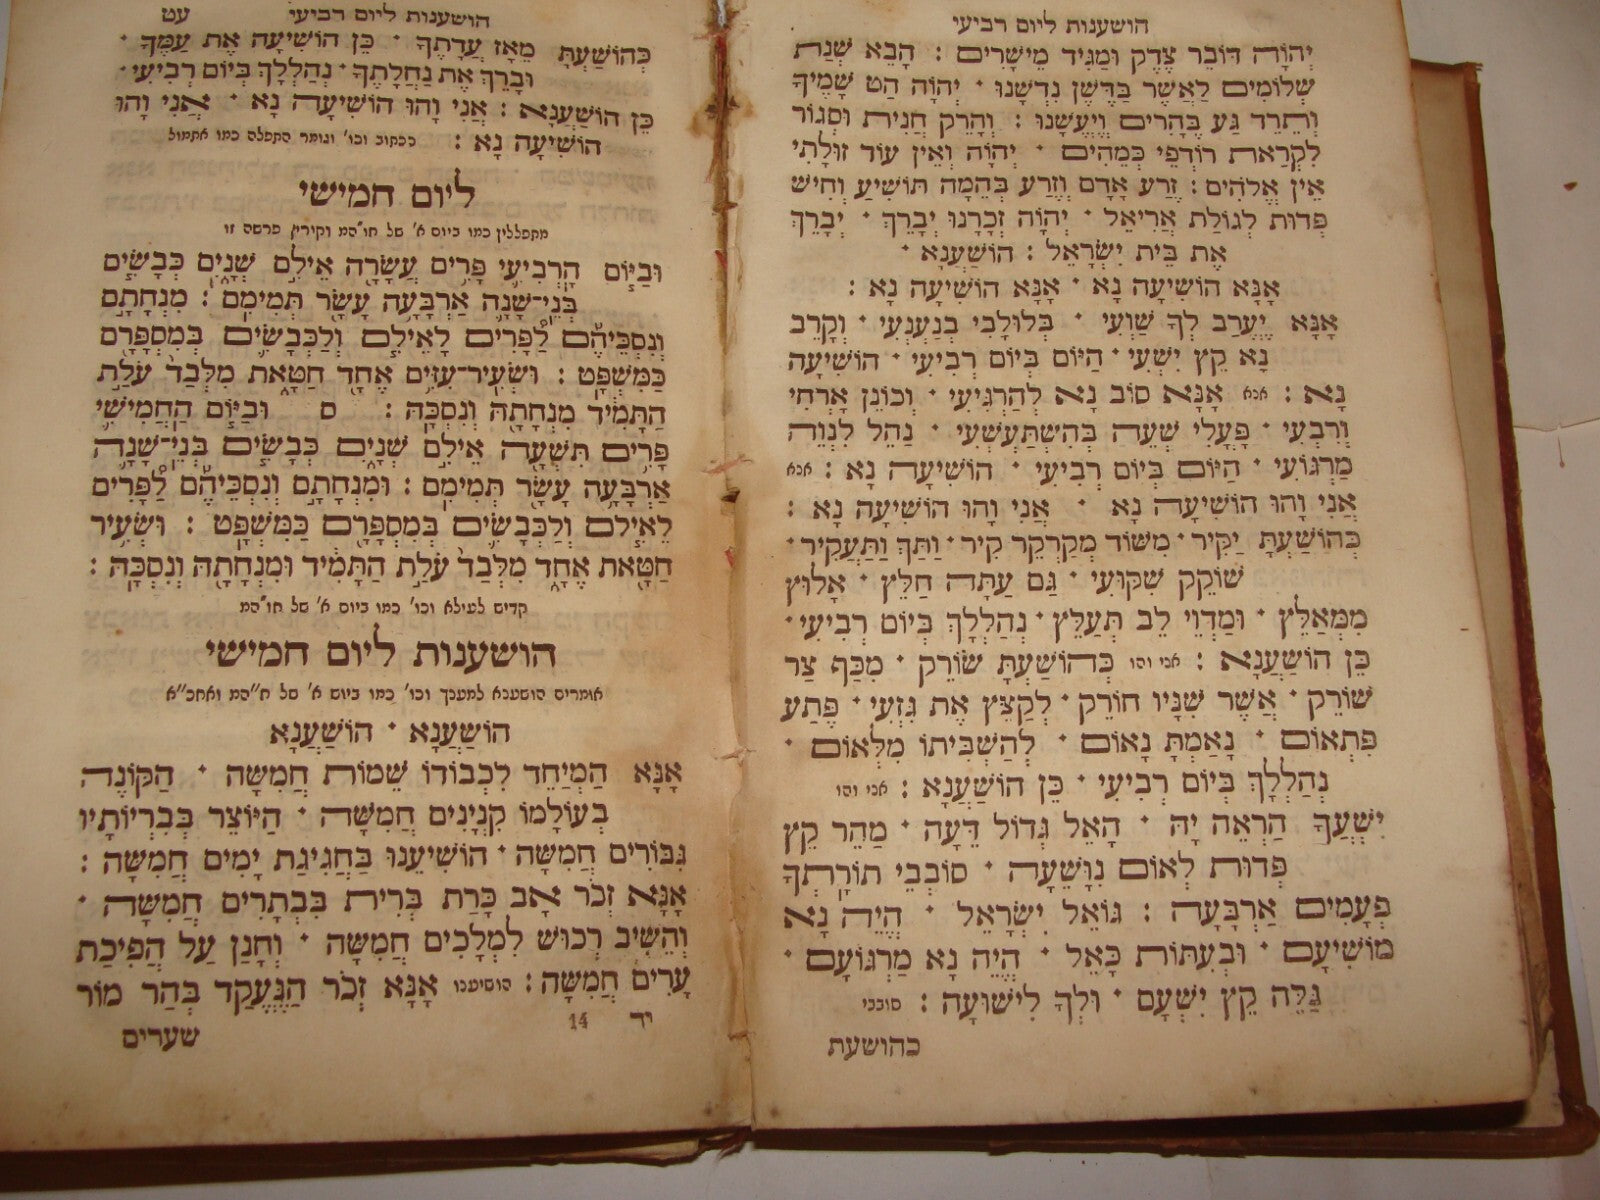 הושענות ליום רביעי
יְהֹוָה דּוֹבֵר צֶדֶק וּמַגִּיד מֵישָׁרִים : הָבֵא שְׁנַת
שִׁלּוּמִים לַאֲשֶׁר בַּדֶּשֶׁן נִדְשָׁנוּ · יְהֹוָה הַט שָׁמֶיךָ
וְתֵרֵד גַּע בֶּהָרִים וְיֶעֱשָׁנוּ : וְהָרֵק חֲנִית וּסְגוֹר
לִקְרַאת רוֹדְפַי כְּמֵהִים · יְהֹוָה וְאֵין עוֹד זוּלָתִי
אֵין אֱלֹהִים : זֶרַע אָדָם וְזֶרַע בְּהֵמָה תּוֹשִׁיעַ וְחִישׁ
פְּדוּת לְגוֹלַת אֲרִיאֵל · יְהֹוָה זְכָרָנוּ יְבָרֵךְ · יְבָרֵךְ
אֶת בֵּית יִשְׂרָאֵל : הוֹשַׁעֲנָא ·
אָנָּא הוֹשִׁיעָה נָא · אָנָּא הוֹשִׁיעָה נָא :
אָנָּא יֶעֱרַב לְךָ שַׁוְעִי · בְּלוּלָבִי בְנַעְנְעִי · וְקָרֵב
נָא קֵץ יִשְׁעִי · הַיּוֹם בְּיוֹם רְבִיעִי · הוֹשִׁיעָה
נָּא : אנא אָנָּא סוֹב נָא לְהַרְגִּיעִי · וְכוֹנֵן אָרְחִי
וְרִבְעִי · פָּעֳלִי שְׁעֵה בְּהִשְׁתַּעְשְׁעִי · נַהֵל לִנְוֵה
מַרְגּוֹעִי · הַיּוֹם בְּיוֹם רְבִיעִי · הוֹשִׁיעָה נָא : אנא
אֲנִי וָהוּ הוֹשִׁיעָה נָא · אֲנִי וָהוּ הוֹשִׁיעָה נָא :
כְּהוֹשַׁעְתָּ יַקִּיר · מִשּׁוֹד מְקַרְקֵר קִיר · וַתַּךְ וַתַּעֲקִיר ·
שׁוֹקֵק שִׁקּוּעִי · גַּם עַתָּה חַלֵּץ · אָלוּץ
מִמְּאַלֵּץ · וּמַדְוֵי לֵב תְּעַלֵּץ · נְהַלְלָךְ בְּיוֹם רְבִיעִי ·
כֵּן הוֹשַׁעֲנָא : אני והו כְּהוֹשַׁעְתָּ שׂוֹרֵק · מִכַּף צַר
שׁוֹרֵק · אֲשֶׁר שִׁנָּיו חוֹרֵק · לְקַצֵּץ אֶת גִּזְעִי · פֶּתַע
פִּתְאוֹם · נָאַמְתָּ נְאוֹם · לְהַשְׁבִּיתוֹ מִלְּאוֹם ·
נְהַלְלָךְ בְּיוֹם רְבִיעִי · כֵּן הוֹשַׁעֲנָא : אני והו
יִשְׁעֲךָ הַרְאֵה יָהּ · הָאֵל גְּדוֹל דֵּעָה · מַהֵר קֵץ
פְּדוּת לְאוֹם נִוָּשֵׁעָה · סוֹבְבֵי תוֹרָתְךָ
פְּעָמִים אַרְבָּעָה : גּוֹאֵל יִשְׂרָאֵל · הֱיֵה נָא
מוֹשִׁיעָם · וּבְעִתּוֹת כָּאֵל · הֱיֵה נָא מַרְגּוֹעָם ·
גַּלֵּה קֵץ יִשְׁעָם · וּלְךָ לִישׁוּעָה : סובבי
כהושעת
הושענות ליום רביעי עט
כְּהוֹשַׁעְתָּ מֵאָז עֲדָתֶךָ · כֵּן הוֹשִׁיעָה אֶת עַמֶּךָ ·
וּבָרֵךְ אֶת נַחֲלָתֶךָ · נְהַלְלָךְ בְּיוֹם רְבִיעִי ·
כֵּן הוֹשַׁעֲנָא : אֲנִי וָהוּ הוֹשִׁיעָה נָא · אֲנִי וָהוּ
הוֹשִׁיעָה נָא : ככתוב וכו' וגומר התפלה כמו אתמול
ליום חמישי
מתפללין כמו ביום א' של חו"המ וקורין פרשה זו
וּבַיּוֹם הָרְבִיעִי פָּרִים עֲשָׂרָה אֵילִם שְׁנָיִם כְּבָשִׂים
בְּנֵי־שָׁנָה אַרְבָּעָה עָשָׂר תְּמִימִם : מִנְחָתָם
וְנִסְכֵּיהֶם לַפָּרִים לָאֵילִם וְלַכְּבָשִׂים בְּמִסְפָּרָם
כַּמִּשְׁפָּט : וּשְׂעִיר־עִזִּים אֶחָד חַטָּאת מִלְּבַד עֹלַת
הַתָּמִיד מִנְחָתָהּ וְנִסְכָּהּ : ס וּבַיּוֹם הַחֲמִישִׁי
פָּרִים תִּשְׁעָה אֵילִם שְׁנָיִם כְּבָשִׂים בְּנֵי־שָׁנָה
אַרְבָּעָה עָשָׂר תְּמִימִם : וּמִנְחָתָם וְנִסְכֵּיהֶם לַפָּרִים
לָאֵילִם וְלַכְּבָשִׂים בְּמִסְפָּרָם כַּמִּשְׁפָּט : וּשְׂעִיר
חַטָּאת אֶחָד מִלְּבַד עֹלַת הַתָּמִיד וּמִנְחָתָהּ וְנִסְכָּהּ :
קדיש לעילא וכו' כמו ביום א' של חו"המ
הושענות ליום חמישי
אומרים הושענא למענך וכו' כמו ביום א' של ח"המ ואחכ"א
הוֹשַׁעֲנָא · הוֹשַׁעֲנָא
אָנָּא הַמְיַחֵד לִכְבוֹדוֹ שֵׁמוֹת חֲמִשָּׁה · הַקּוֹנֶה
בְעוֹלָמוֹ קִנְיָנִים חֲמִשָּׁה · הַיּוֹצֵר בִּבְרִיּוֹתָיו
גִּבּוֹרִים חֲמִשָּׁה · הוֹשִׁיעֵנוּ בַּחֲגִיגַת יָמִים חֲמִשָּׁה :
אָנָּא זְכֹר אָב כָּרַת בְּרִית בִּבְתָרִים חֲמִשָּׁה ·
וְהֵשִׁיב רְכוּשׁ לִמְלָכִים חֲמִשָּׁה · וְחָנַן עַל הֲפִיכַת
עָרִים חֲמִשָּׁה : הושיענו אָנָּא זְכֹר הַנֶּעֱקַד בְּהַר מוֹר
יד 14 שערים